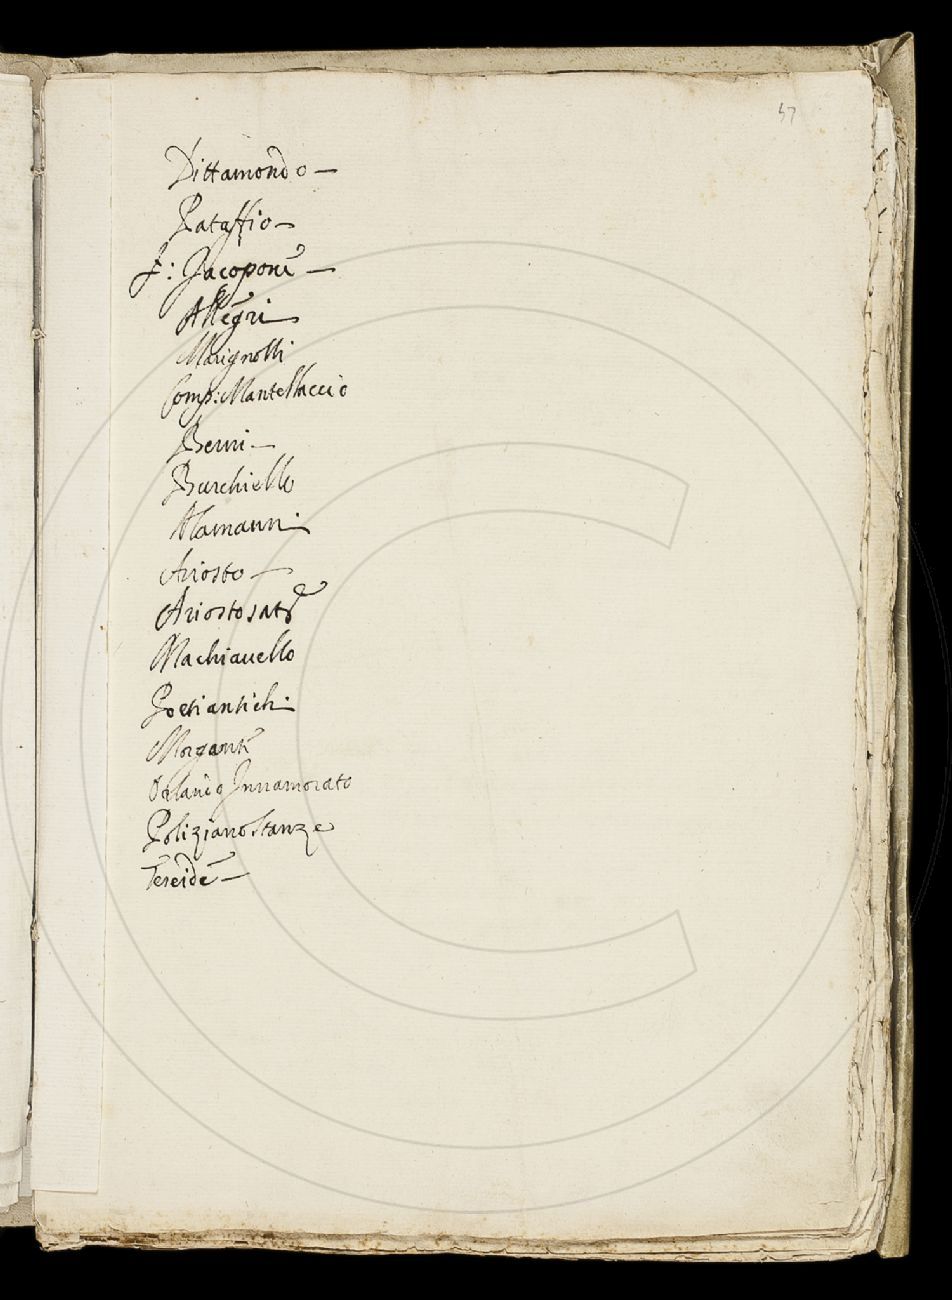 57
Dittamondo —
Pataffio —
F: Jacopone —
Allegri —
Marignolli
Comp: Mantellaccio
Berni —
Burchiello
Alamanni
Ariosto —
Ariosto sat:
Machiavello
Poeti antichi
Morgante
Orlando Innamorato
Poliziano Stanze
Teseide —